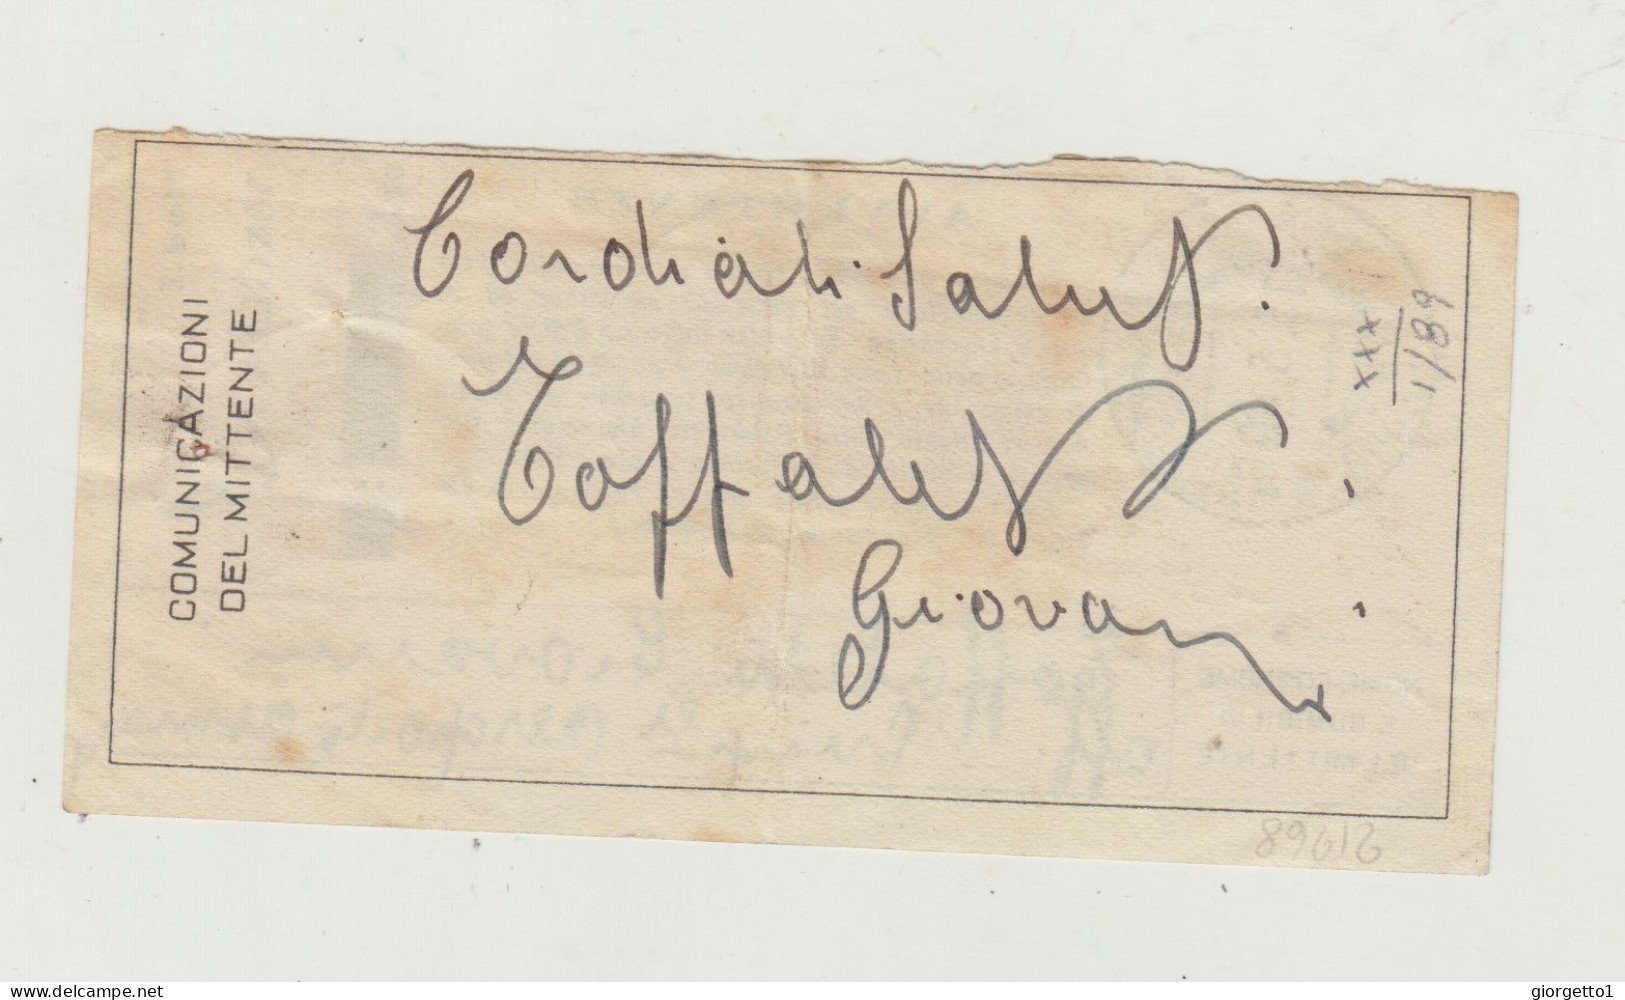 COMUNICAZIONI
DEL MITTENTE
Cordiali Saluti.
Toffaletti
Giovani
XXX
1/89
delcampe.net
giorgetto1